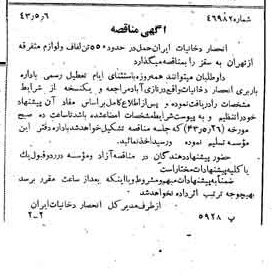 شماره ۴۶۹۸۲ ۴۳ر۵ر۶
آگهی مناقصه
انحصار دخانیات ایران حمل در حدود ۵۵۰ تن لفاف ولوازم متفرقه
از تهران به سقز را بمناقصه میگذارد
داوطلبان میتوانند همه روزه باستثنای ایام تعطیل رسمی باداره
باربری انحصار دخانیات واقع در نازی آباد مراجعه و یکنسخه از شرایط
مشخصات را دریافت نموده و پس از اطلاع کامل بر اساس مفاد آن پیشنهاد
خود را تنظیم و به پیوست شرایط مشخصات امضاء شده باید تا ساعت ده صبح
مورخه (۴۳ر۵ر۲۶) که جلسه مناقصه تشکیل خواهد شد باداره دفتر این
مؤسسه تسلیم نموده و رسید اخذ نمائید.
حضور پیشنهاد دهندگان در مناقصه آزاد و مؤسسه در رد و قبول یک
یا کلیه پیشنهادات مختار است
ضمناً به پیشنهادات مبهم و مشروط و یا اینکه بعد از ساعت مقرر برسد
بهیچوجه ترتیب اثر داده نخواهد شد
از طرف مدیر کل انحصار دخانیات ایران
پ ۵۹۲۸ ۲-۲